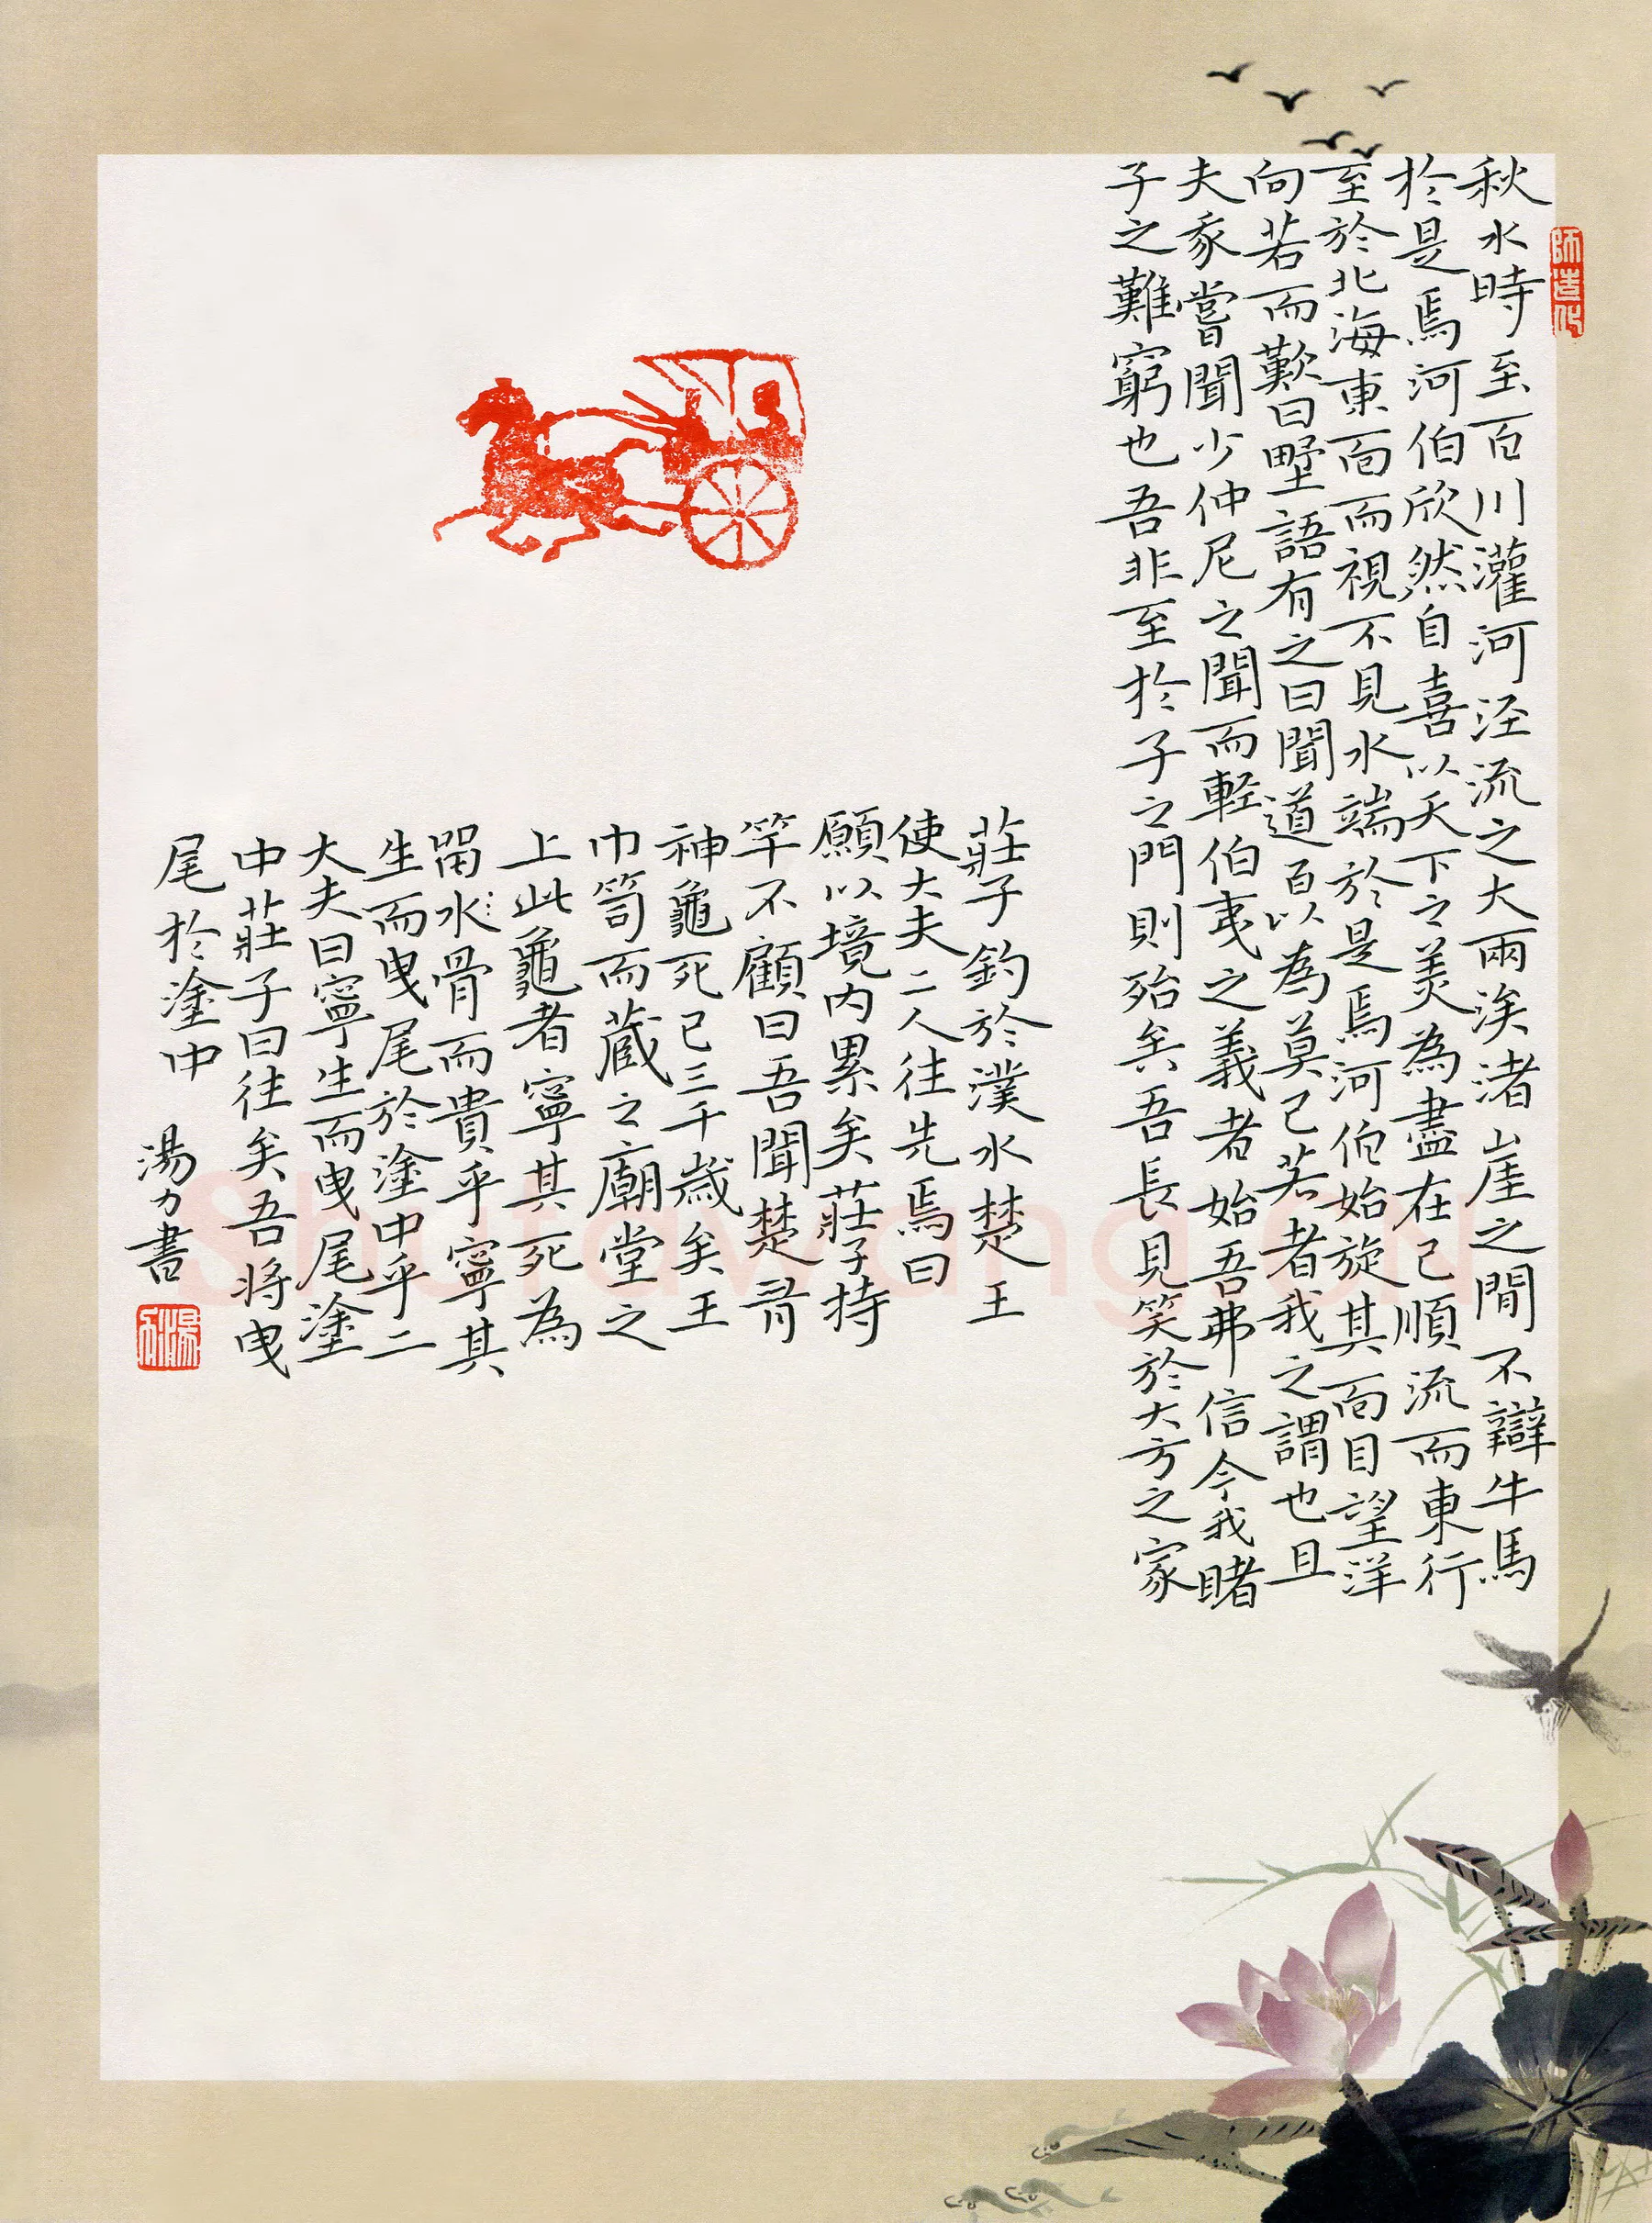 師造化
秋水時至百川灌河泾流之大兩涘渚崖之間不辯牛馬
於是焉河伯欣然自喜以天下之美為盡在己順流而東行
至於北海東面而視不見水端於是焉河伯始旋其面目望洋
向若而歎曰野語有之曰聞道百以為莫己若者我之謂也且
夫我嘗聞少仲尼之聞而軽伯夷之義者始吾弗信今我睹
子之難窮也吾非至於子之門則殆矣吾長見笑於大方之家
莊子釣於濮水楚王
使大夫二人往先焉曰
願以境内累矣莊子持
竿不顧曰吾聞楚有
神龜死已三千歳矣王
巾笥而蔵之廟堂之
上此龜者寧其死為
留水骨而貴乎寧其
生而曳尾於塗中乎二
大夫曰寧生而曳尾塗
中莊子曰往矣吾将曳
尾於塗中
湯力書
湯力
Shufawang.cn